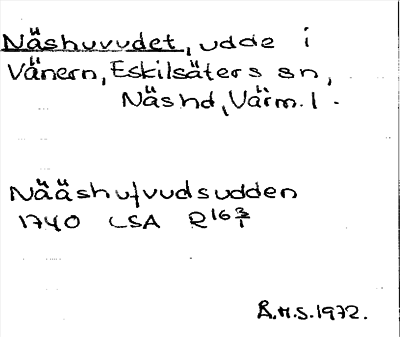 Näshuvudet, udde i
Vänern, Eskilsäters sn,
Näshd, Värm. l.
Nääshufvudsudden
1740 LSA R16 3/1
B.H.S. 1972.